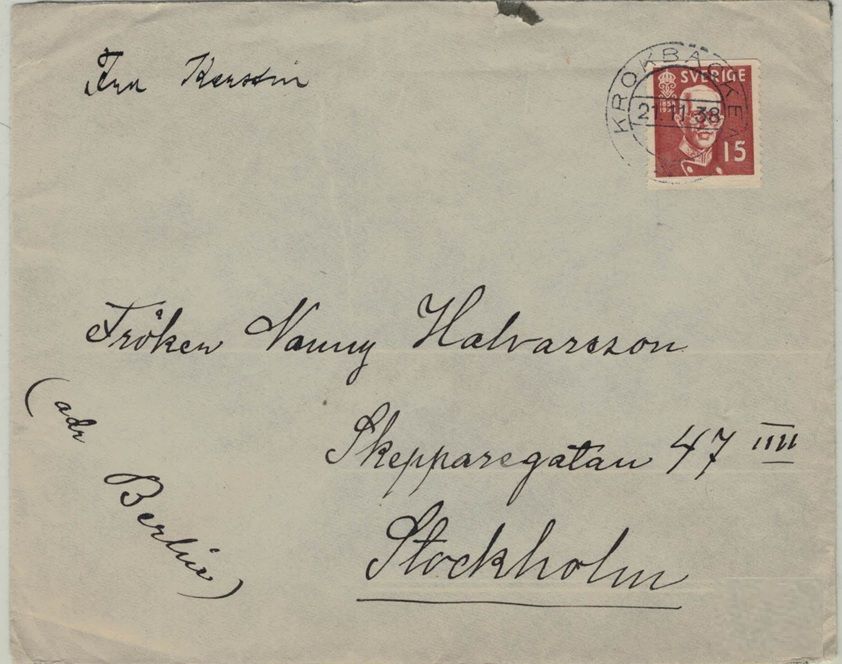 Fru Kerstin
KROKBÄCKEN
21.11.38
SVERIGE
1858
15
Fröken Nanny Halvarsson
Skepparegatan 47 IIII
Stockholm
(adr Berlin)